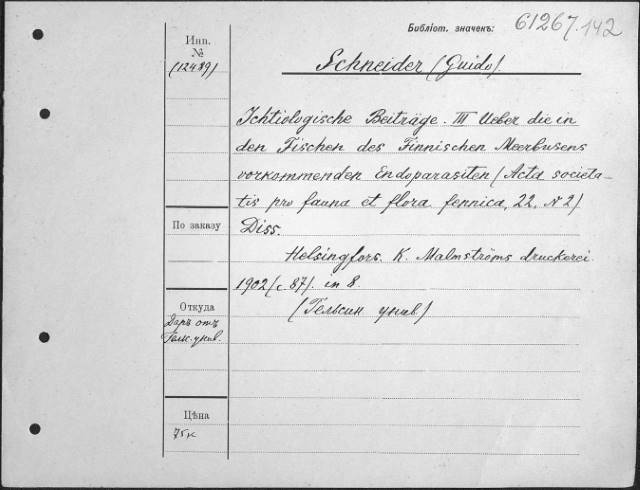 Библіот. значекъ: 61267.142
Инв.
№
(12489)
Schneider (Guido).
Ichtiologische Beiträge. III Ueber die in
den Fischen des Finnischen Meerbusens
vorkommenden Endoparasiten (Acta societa-
tis pro fauna et flora fennica, 22, N 2)
По заказу
Diss.
Helsingfors. K. Malmströms druckerei
1902 (с. 87). in 8.
Откуда
(Гельсин унив.)
Даръ отъ
Гельс. унив.
Цѣна
75 к